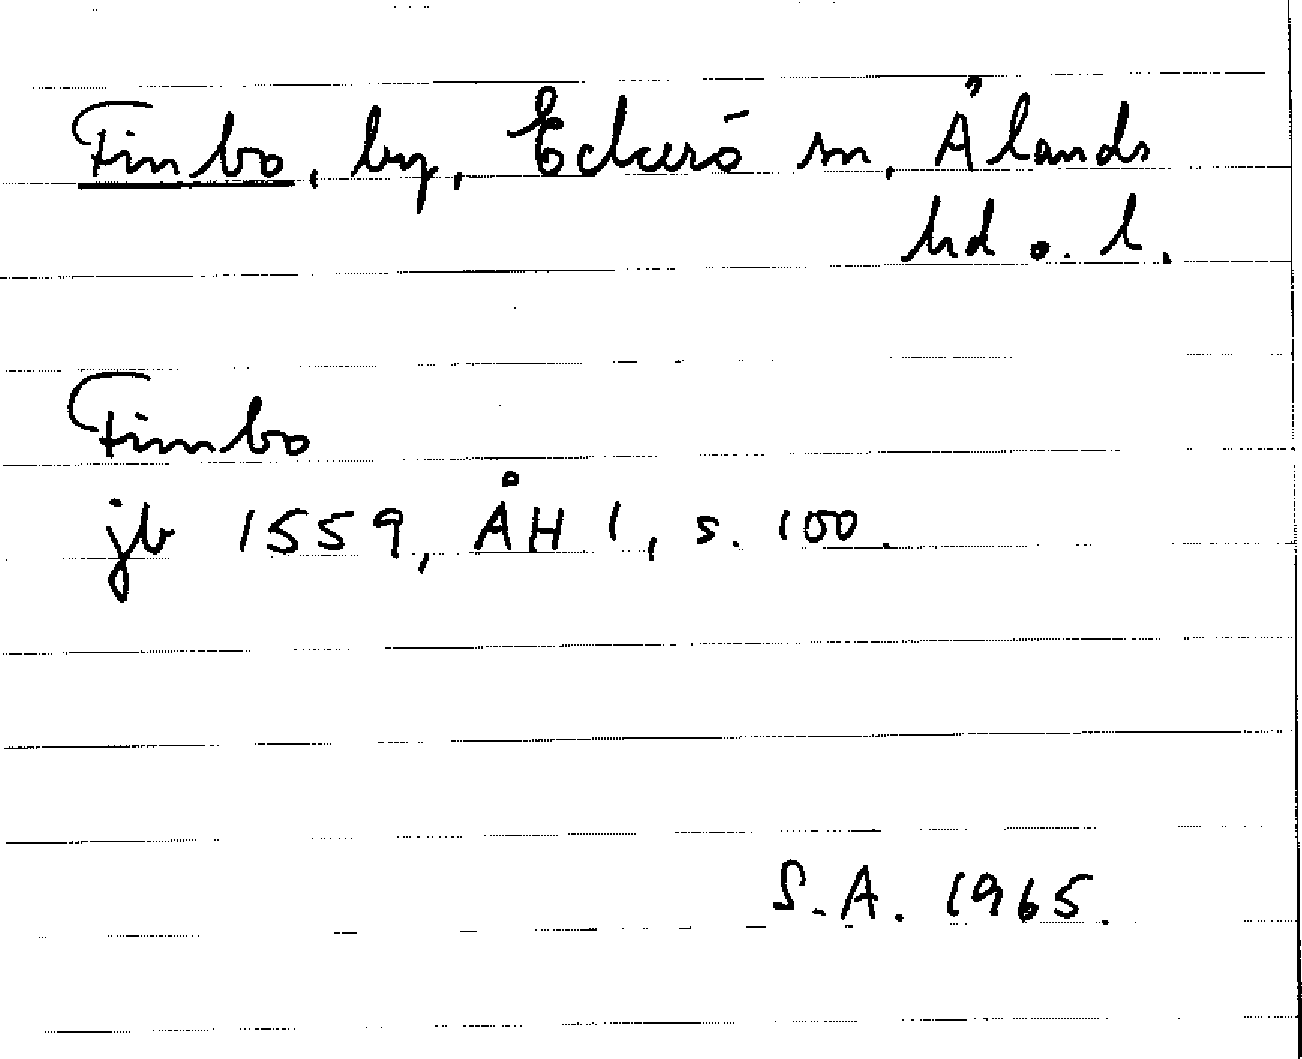 Finbo, by, Eckerö sn, Ålands
hd o. l.
Finnbo
jb 1559, ÅH 1, s. 100.
S.A. 1965.